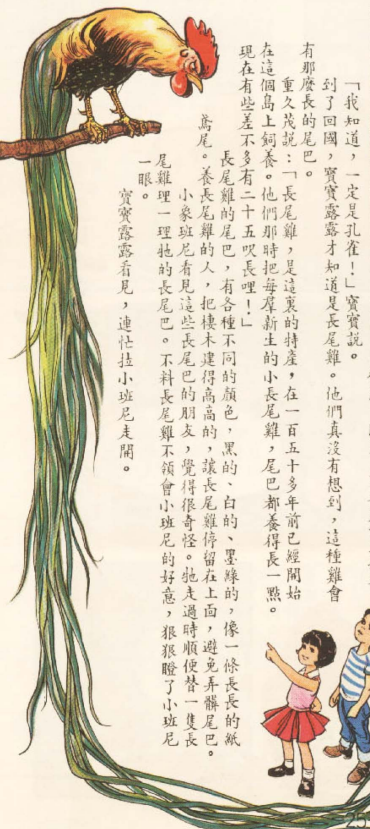 「我知道，一定是孔雀！」寶寶說。
到了回國，寶寶露露才知道是長尾雞。他們真沒有想到，這種雞會
有那麼長的尾巴。
重久茂說：「長尾雞，是這裏的特產，在一百五十多年前已經開始
在這個島上飼養。他們那時把每羣新生的小長尾雞，尾巴都養得長一點。
現在有些差不多有二十五呎長哩！」
長尾雞的尾巴，有各種不同的顏色，黑的、白的、墨綠的，像一條長長的紙
鳶尾。養長尾雞的人，把棲木建得高高的，讓長尾雞停留在上面，避免弄髒尾巴。
小象班尼看見這些長尾巴的朋友，覺得很奇怪。牠走過時順便替一隻長
尾雞理一理牠的長尾巴。不料長尾雞不領會小班尼的好意，狠狠瞪了小班尼
一眼。
寶寶露露看見，連忙拉小班尼走開。
25